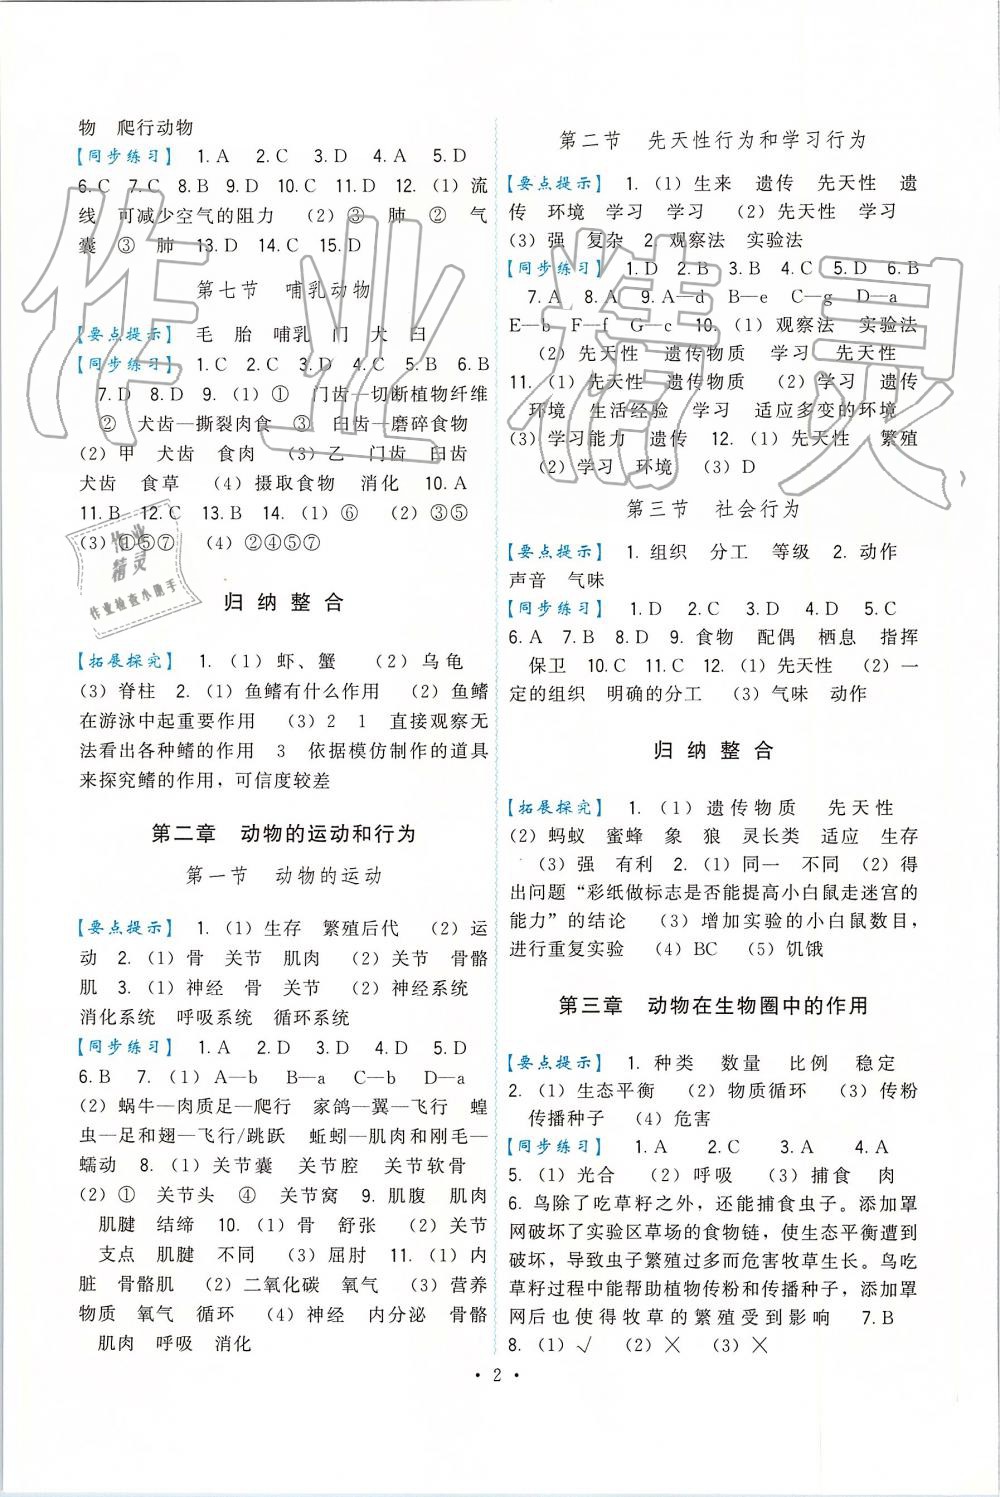 物　爬行动物
【同步练习】　1. A　2. C　3. D　4. A　5. D
6. C　7. C　8. B　9. D　10. C　11. D　12.（1）流
线　可减少空气的阻力　（2）③　肺　②　气
囊　③　肺　13. D　14. C　15. D
第七节　哺乳动物
【要点提示】　毛　胎　哺乳　门　犬　臼
【同步练习】　1. C　2. C　3. D　4. C　5. B　6. B
7. D　8. D　9.（1）①　门齿—切断植物纤维
②　犬齿—撕裂肉食　③　臼齿—磨碎食物
（2）甲　犬齿　食肉　（3）乙　门齿　臼齿
犬齿　食草　（4）摄取食物　消化　10. A
11. B　12. C　13. B　14.（1）⑥　（2）③⑤
（3）①⑤⑦　（4）②④⑤⑦
归纳整合
【拓展探究】　1.（1）虾、蟹　（2）乌龟
（3）脊柱　2.（1）鱼鳍有什么作用　（2）鱼鳍
在游泳中起重要作用　（3）2　1　直接观察无
法看出各种鳍的作用　3　依据模仿制作的道具
来探究鳍的作用，可信度较差
第二章　动物的运动和行为
第一节　动物的运动
【要点提示】　1.（1）生存　繁殖后代　（2）运
动　2.（1）骨　关节　肌肉　（2）关节　骨骼
肌　3.（1）神经　骨　关节　（2）神经系统
消化系统　呼吸系统　循环系统
【同步练习】　1. A　2. D　3. D　4. C　5. D
6. B　7.（1）A—b　B—a　C—d　D—a
（2）蜗牛—肉质足—爬行　家鸽—翼—飞行　蝗
虫—足和翅—飞行/跳跃　蚯蚓—肌肉和刚毛—
蠕动　8.（1）关节囊　关节腔　关节软骨
（2）①　关节头　④　关节窝　9. 肌腹　肌肉
肌腱　结缔　10.（1）骨　舒张　（2）关节
支点　肌腱　不同　（3）屈肘　11.（1）内
脏　骨骼肌　（2）二氧化碳　氧气　（3）营养
物质　氧气　循环　（4）神经　内分泌　骨骼
肌肉　呼吸　消化
第二节　先天性行为和学习行为
【要点提示】　1.（1）生来　遗传　先天性　遗
传　环境　学习　学习　（2）先天性　学习
（3）强　复杂　2. 观察法　实验法
【同步练习】　1. D　2. B　3. B　4. C　5. D　6. B
7. A　8. A　9. A—d　B—e　C—g　D—a
E—b　F—f　G—c　10.（1）观察法　实验法
（2）先天性　遗传物质　学习　先天性
11.（1）先天性　遗传物质　（2）学习　遗传
环境　生活经验　学习　适应多变的环境
（3）学习能力　遗传　12.（1）先天性　繁殖
（2）学习　环境　（3）D
第三节　社会行为
【要点提示】　1. 组织　分工　等级　2. 动作
声音　气味
【同步练习】　1. D　2. C　3. D　4. D　5. C
6. A　7. B　8. D　9. 食物　配偶　栖息　指挥
保卫　10. C　11. C　12.（1）先天性　（2）一
定的组织　明确的分工　（3）气味　动作
归纳整合
【拓展探究】　1.（1）遗传物质　先天性
（2）蚂蚁　蜜蜂　象　狼　灵长类　适应　生存
（3）强　有利　2.（1）同一　不同　（2）得
出问题“彩纸做标志是否能提高小白鼠走迷宫的
能力”的结论　（3）增加实验的小白鼠数目，
进行重复实验　（4）BC　（5）饥饿
第三章　动物在生物圈中的作用
【要点提示】　1. 种类　数量　比例　稳定
2.（1）生态平衡　（2）物质循环　（3）传粉
传播种子　（4）危害
【同步练习】　1. A　2. C　3. A　4. A
5.（1）光合　（2）呼吸　（3）捕食　肉
6. 鸟除了吃草籽之外，还能捕食虫子。添加罩
网破坏了实验区草场的食物链，使生态平衡遭到
破坏，导致虫子繁殖过多而危害牧草生长。鸟吃
草籽过程中能帮助植物传粉和传播种子，添加罩
网后也使得牧草的繁殖受到影响　7. B
8.（1）√　（2）×　（3）×
· 2 ·
作业精灵
作业
精灵
作业检查小助手